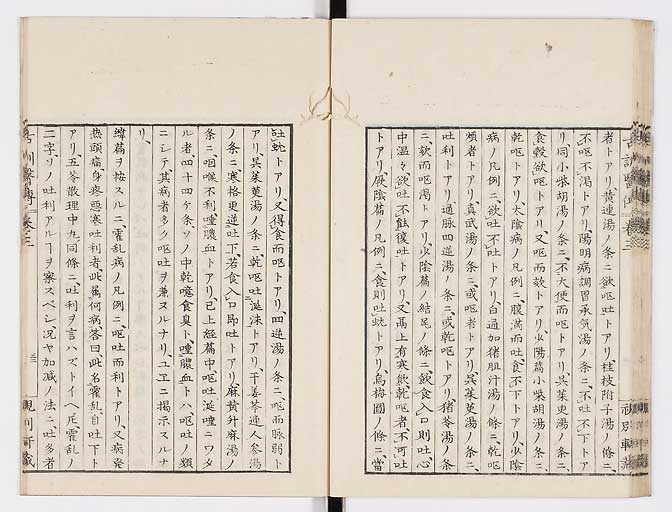 者トアリ、黄連湯ノ条ニ、欲嘔吐トアリ、桂枝附子湯ノ條ニ、
不嘔不渇トアリ、陽明病調胃承気湯ノ条ニ、不吐不下トア
リ、同小柴胡湯ノ条ニ、不大便而嘔トアリ、呉茱萸湯ノ条ニ、
食穀欲嘔トアリ、又嘔而トアリ、少陽篇小柴胡湯ノ条ニ、
乾嘔トアリ、太陰病ノ凡例ニ、腹満而吐食不下トアリ、少陰
病ノ凡例ニ、欲吐不吐トアリ、白通加猪胆汁湯ノ條ニ、乾嘔
煩者トアリ、真武湯ノ条ニ、或嘔者トアリ、呉茱萸湯ノ条ニ、
吐利トアリ、通脉四逆湯ノ条ニ、或乾嘔トアリ、猪苓湯ノ条
ニ、欬而嘔渇トアリ、少陰篇ノ結尾ノ條ニ、飲食入口則吐、心
中温々欲吐、不能復吐トアリ、又鬲上有寒飲、乾嘔者、不可吐
トアリ、厥陰篇ノ凡例ニ、食則吐蚘トアリ、烏梅圓ノ條ニ、當
吐蚘トアリ、又得食而嘔トアリ、四逆湯ノ条ニ、嘔而脉弱ト
アリ、呉茱萸湯ノ条ニ、乾嘔吐涎沫トアリ、干姜芩連人参湯
ノ条ニ、寒格更逆吐下、若食入口即吐トアリ、麻黄升麻湯ノ
条ニ、咽喉不利、唾膿血トアリ、已上経篇中、嘔吐涎唾ニワタ
ル者四十四ケ条、ソノ中乾噫食臭ト、唾膿血トハ、嘔吐ノ類
ニシテ、其病者多ク嘔吐ヲ兼ヌルナリ、ユヱニ掲示スルナ
リ、
緯篇ヲ按スルニ、霍乱病ノ凡例ニ、嘔吐而利トアリ、又病発
热頭痛身疼悪寒吐利者、此属何病、答曰、此名霍乱、自吐下ト
アリ、五苓散理中丸同條ニ、吐利ヲ言ハズトイヘ𪜈、霍乱ノ
二字、ソノ吐利アルヿヲ察スベシ、况ヤ加减ノ法ニ、吐多者